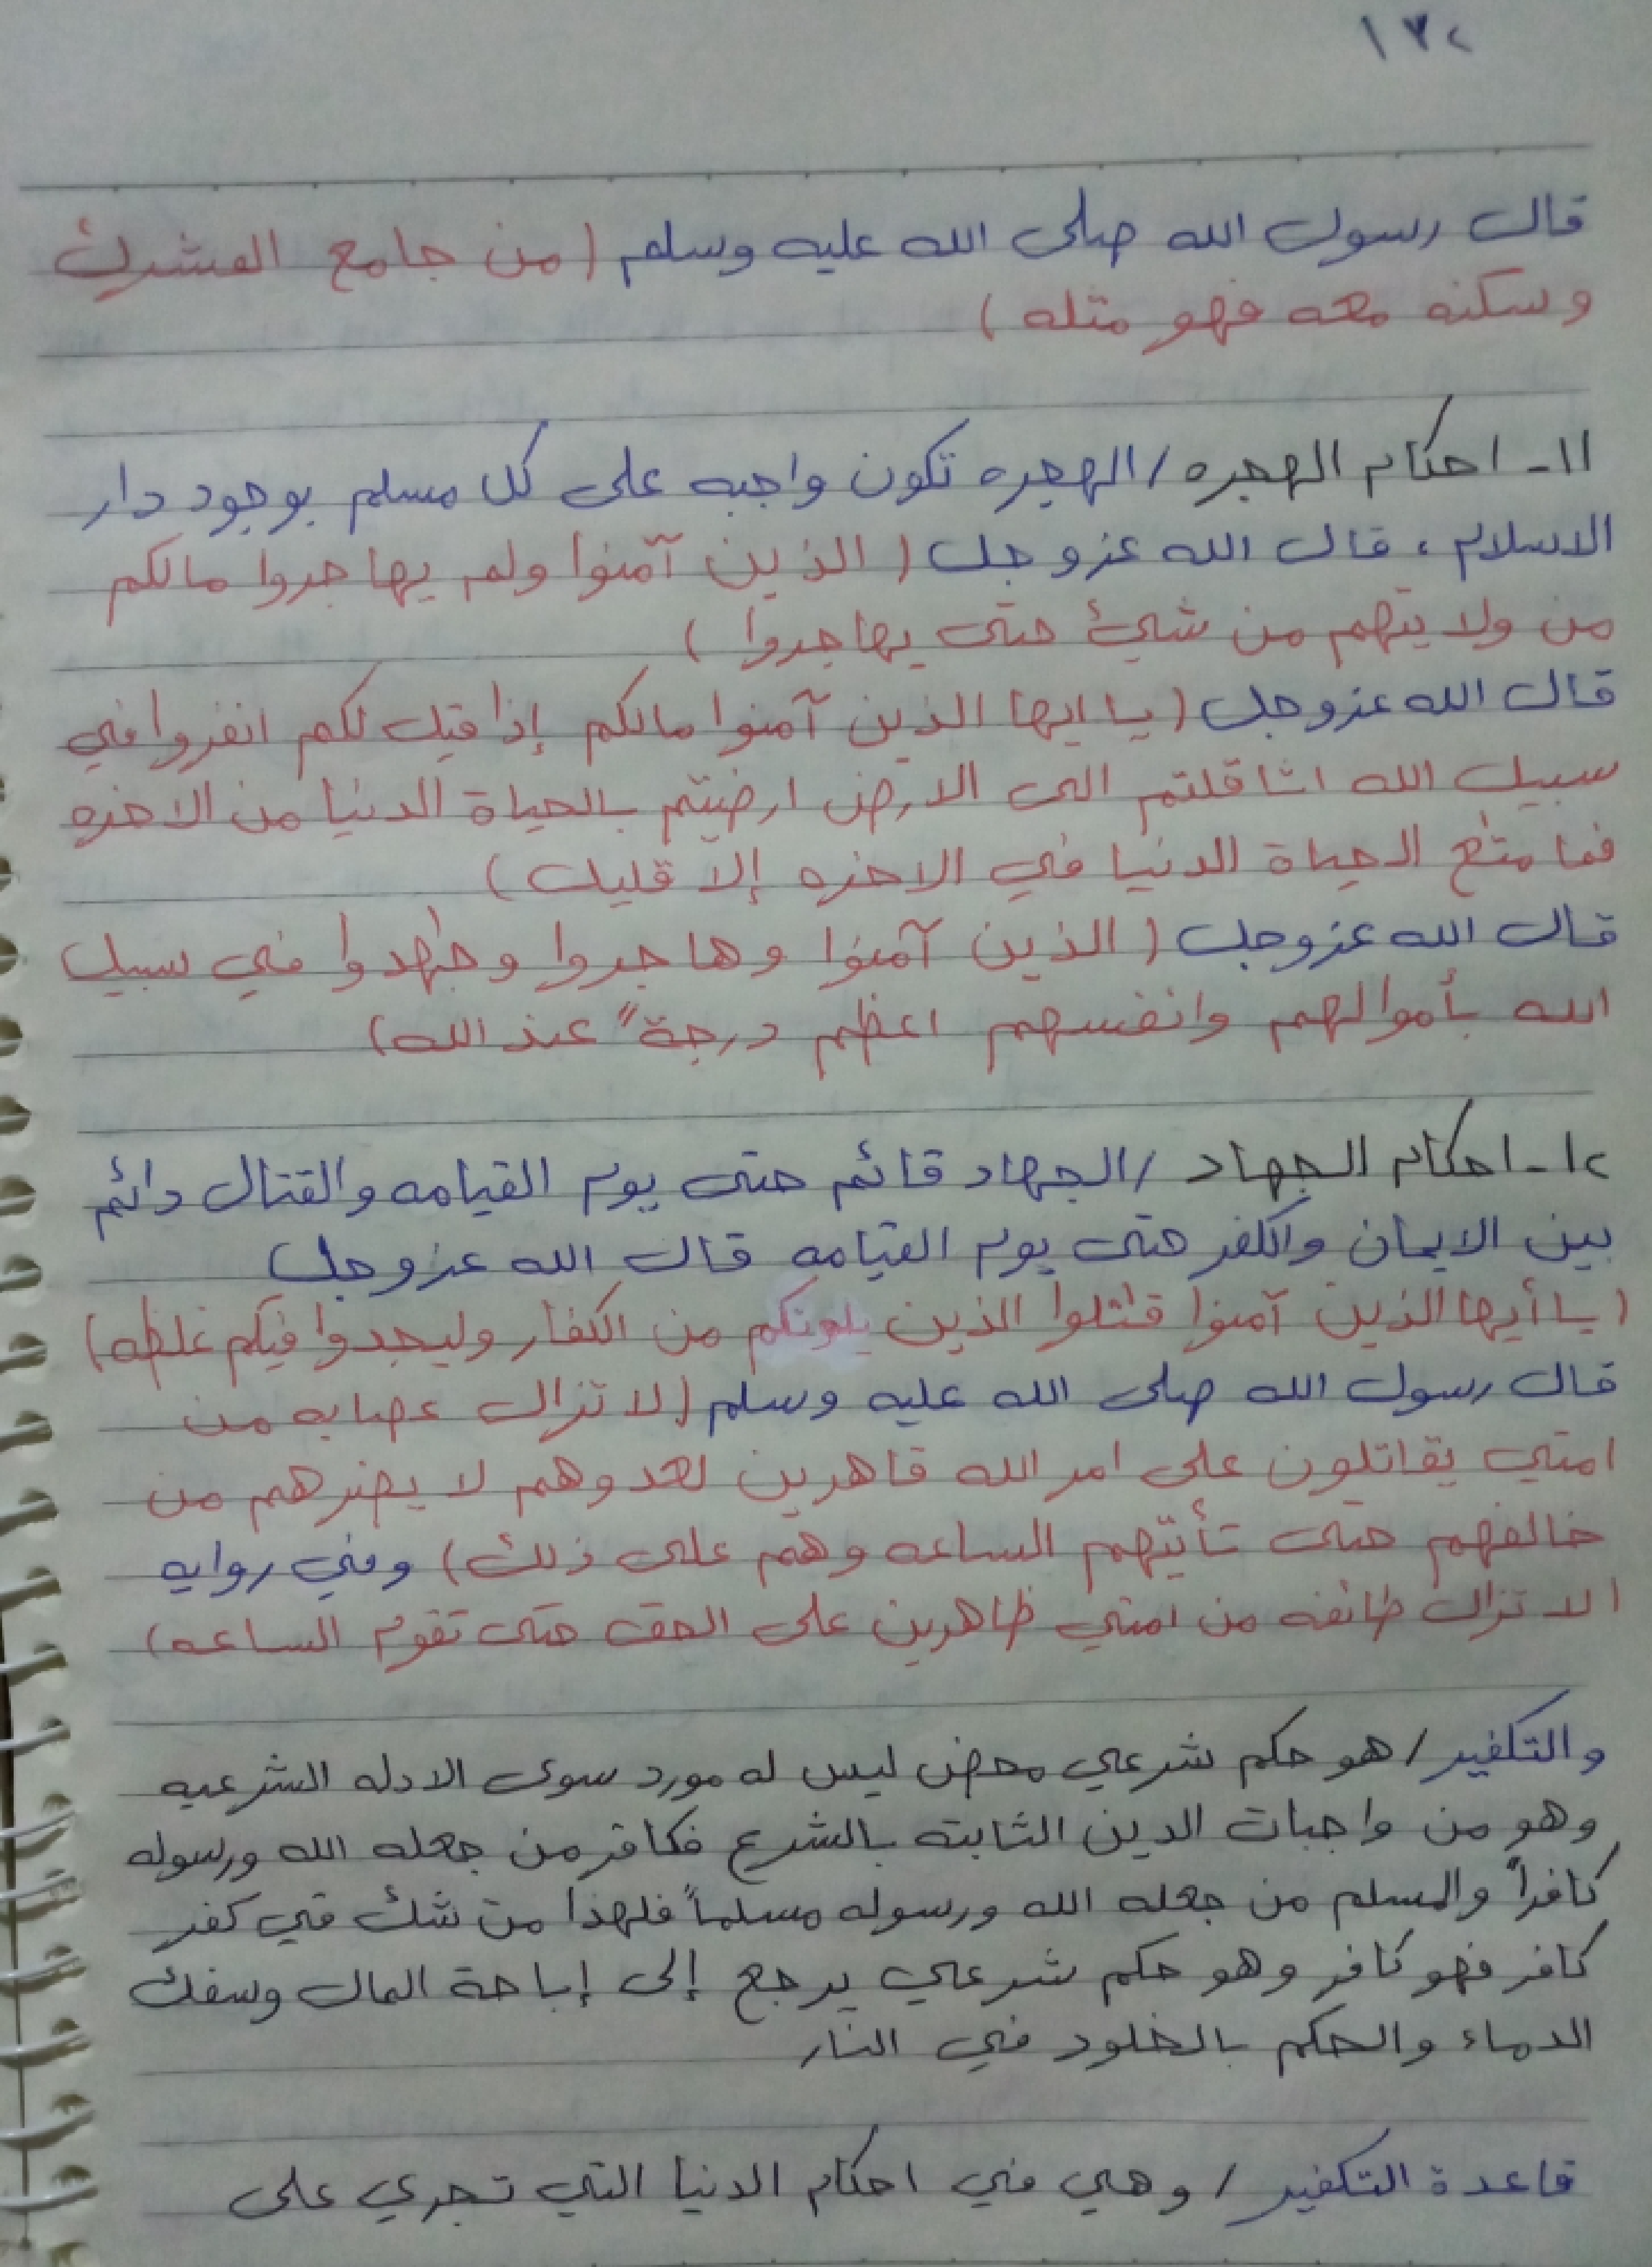 ١٧٢
قال رسول الله صلى الله عليه وسلم (من جامع المشرك
وسكنه معه فهو مثله)
١١- احكام الهجره / الهجره تكون واجبه على كل مسلم بوجود دار
الاسلام ، قال الله عزوجل (الذين آمنوا ولم يهاجروا مالكم
من ولايتهم من شيئ حتى يهاجروا)
قال الله عزوجل (يا ايها الذين آمنوا مالكم إذا قيل لكم انفروا في
سبيل الله اثاقلتم الى الارض ارضيتم بالحياة الدنيا من الاخره
فما متٰع الحياة الدنيا في الاخره إلا قليل)
قال الله عزوجل (الذين آمنوا وهاجروا وجٰهدوا في سبيل
الله بأموالهم وانفسهم اعظم درجةً عند الله)
١٢- احكام الجهاد / الجهاد قائم حتى يوم القيامه والقتال دائم
بين الايمان والكفر حتى يوم القيامه قال الله عزوجل
(يا أيها الذين آمنوا قٰتلوا الذين يلونكم من الكفار وليجدوا فيكم غلظه)
قال رسول الله صلى الله عليه وسلم (لا تزال عصابه من
امتي يقاتلون على امر الله قاهرين لعدوهم لا يضرهم من
خالفهم حتى تأتيهم الساعه وهم على ذلك) وفي روايه
(لا تزال طائفه من امتي ظاهرين على الحق حتى تقوم الساعه)
والتكفير / هو حكم شرعي محض ليس له مورد سوى الادله الشرعيه
وهو من واجبات الدين الثابته بالشرع فكافر من جعله الله ورسوله
كافراً والمسلم من جعله الله ورسوله مسلماً فلهذا من شك في كفر
كافر فهو كافر وهو حكم شرعي يرجع إلى إباحة المال وسفك
الدماء والحكم بالخلود في النار
قاعدة التكفير / وهي في احكام الدنيا التي تجري على